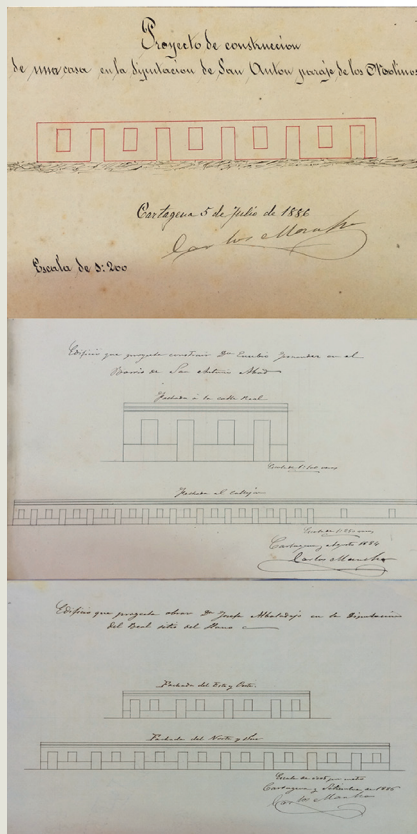 Proyecto de construccion
de una casa en la diputacion de San Anton paraje de los Molinos
Cartagena 5 de Julio de 1886
Carlos Mancha
Escala de 1:200
Edificio que proyecta construir Dn Eusebio en el
Barrio de San Antonio Abad
Fachada á la calle Real
Escala de 1:100
Fachada al Callejon
Escala de
Cartagena y Agosto 1884
Carlos Mancha
Edificio que proyecta obrar Dn Josefa en la Diputacion
del Real sitio del Plano
Fachada del Este y Oeste
Fachada del Norte y Sur
Escala de por metro
Cartagena y Setiembre de 1886
Carlos Mancha